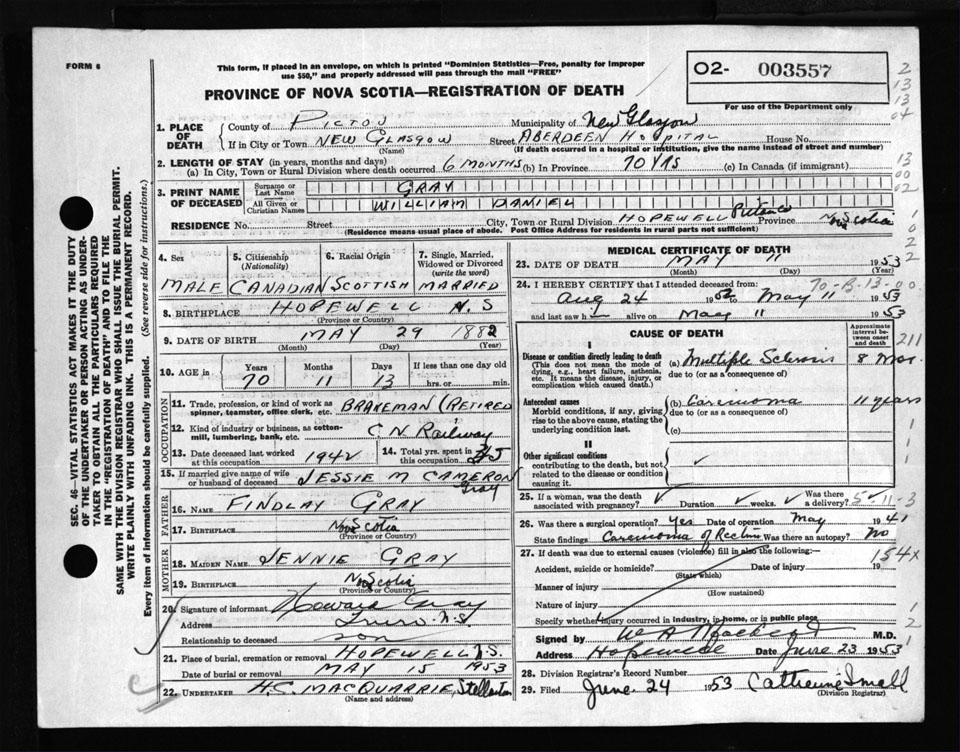 FORM 6
This form, if placed in an envelope, on which is printed "Dominion Statistics—Free, penalty for improper
use $50," and properly addressed will pass through the mail "FREE"
PROVINCE OF NOVA SCOTIA—REGISTRATION OF DEATH
02- 003557
For use of the Department only
2
13
13
04
1. PLACE OF DEATH
County of PICTOU Municipality of New Glasgow
If in City or Town NEW GLASGOW Street ABERDEEN HOSPITAL House No.
(Name) (If death occurred in a hospital or institution, give the name instead of street and number)
2. LENGTH OF STAY (in years, months and days)
(a) In City, Town or Rural Division where death occurred 6 MONTHS (b) In Province 70 YRS (c) In Canada (if immigrant)
13
00
02
3. PRINT NAME OF DECEASED
Surname or Last Name GRAY
All Given or Christian Names WILLIAM DANIEL
RESIDENCE No. Street City, Town or Rural Division HOPEWELL Pictou Co Province Nova Scotia
(Residence means usual place of abode. Post Office Address for residents in rural parts not sufficient)
1
0
2
2
4. Sex
MALE
5. Citizenship (Nationality)
CANADIAN
6. Racial Origin
SCOTTISH
7. Single, Married, Widowed or Divorced (write the word)
MARRIED
8. BIRTHPLACE HOPEWELL N.S
(Province or Country)
9. DATE OF BIRTH MAY 29 1882
(Month) (Day) (Year)
10. AGE in
Years Months Days If less than one day old
70 11 13 hrs. or min.
OCCUPATION
11. Trade, profession, or kind of work as spinner, teamster, office clerk, etc. BRAKEMAN (RETIRED
12. Kind of industry or business, as cotton-mill, lumbering, bank, etc. C N Railway
13. Date deceased last worked at this occupation 1942
14. Total yrs. spent in this occupation
15. If married give name of wife or husband of deceased JESSIE M CAMERON
Gray
FATHER
16. Name FINDLAY GRAY
17. Birthplace Nova Scotia
(Province or Country)
MOTHER
18. MAIDEN NAME JENNIE GRAY
19. BIRTHPLACE Nova Scotia
(Province or Country)
20. Signature of informant Howard Gray
Address Truro N.S.
Relationship to deceased son
21. Place of burial, cremation or removal HOPEWELL N.S.
Date of burial or removal MAY 15 1953
22. UNDERTAKER H.C. MACQUARRIE, Stellarton
MEDICAL CERTIFICATE OF DEATH
23. DATE OF DEATH MAY 11 1953
(Month) (Day) (Year)
70-B-13-00
24. I HEREBY CERTIFY that I attended deceased from:
Aug 24 1952 to May 11 1953
and last saw h alive on May 11 1953
CAUSE OF DEATH
Approximate interval between onset and death
211
I
Disease or condition directly leading to death (a) Multiple Sclerosis 8 Mos.
(This does not mean the mode of dying, e.g., heart failure, asthenia, etc. It means the disease, injury, or complication which caused death.)
due to (or as a consequence of)
Antecedent causes (b) Carcinoma 11 years
Morbid conditions, if any, giving rise to the above cause, stating the underlying condition last.
due to (or as a consequence of)
(c)
II
Other significant conditions
contributing to the death, but not related to the disease or condition causing it.
25. If a woman, was the death associated with pregnancy? Duration weeks. Was there a delivery?
5-11-3
26. Was there surgical operation? Yes Date of operation May 1941
State findings Carcinoma of Rectum Was there an autopsy? No
27. If death was due to external causes (violence) fill in also the following:—
154x
Accident, suicide or homicide? Date of injury 19
(State which)
Manner of injury
(How sustained)
Nature of injury
Specify whether injury occurred in industry, in home, or in public place
Signed by M.D.
Address Hopewell Date June 23 1953
28. Division Registrar's Record Number
29. Filed June 24 1953 Catherine Small
(Division Registrar)
SEC. 46—VITAL STATISTICS ACT MAKES IT THE DUTY
OF THE UNDERTAKER OR PERSON ACTING AS UNDER-
TAKER TO OBTAIN ALL THE PARTICULARS REQUIRED
IN THE "REGISTRATION OF DEATH" AND TO FILE THE
SAME WITH THE DIVISION REGISTRAR WHO SHALL ISSUE THE BURIAL PERMIT.
WRITE PLAINLY WITH UNFADING INK. THIS IS A PERMANENT RECORD.
Every item of information should be carefully supplied. (See reverse side for instructions.)